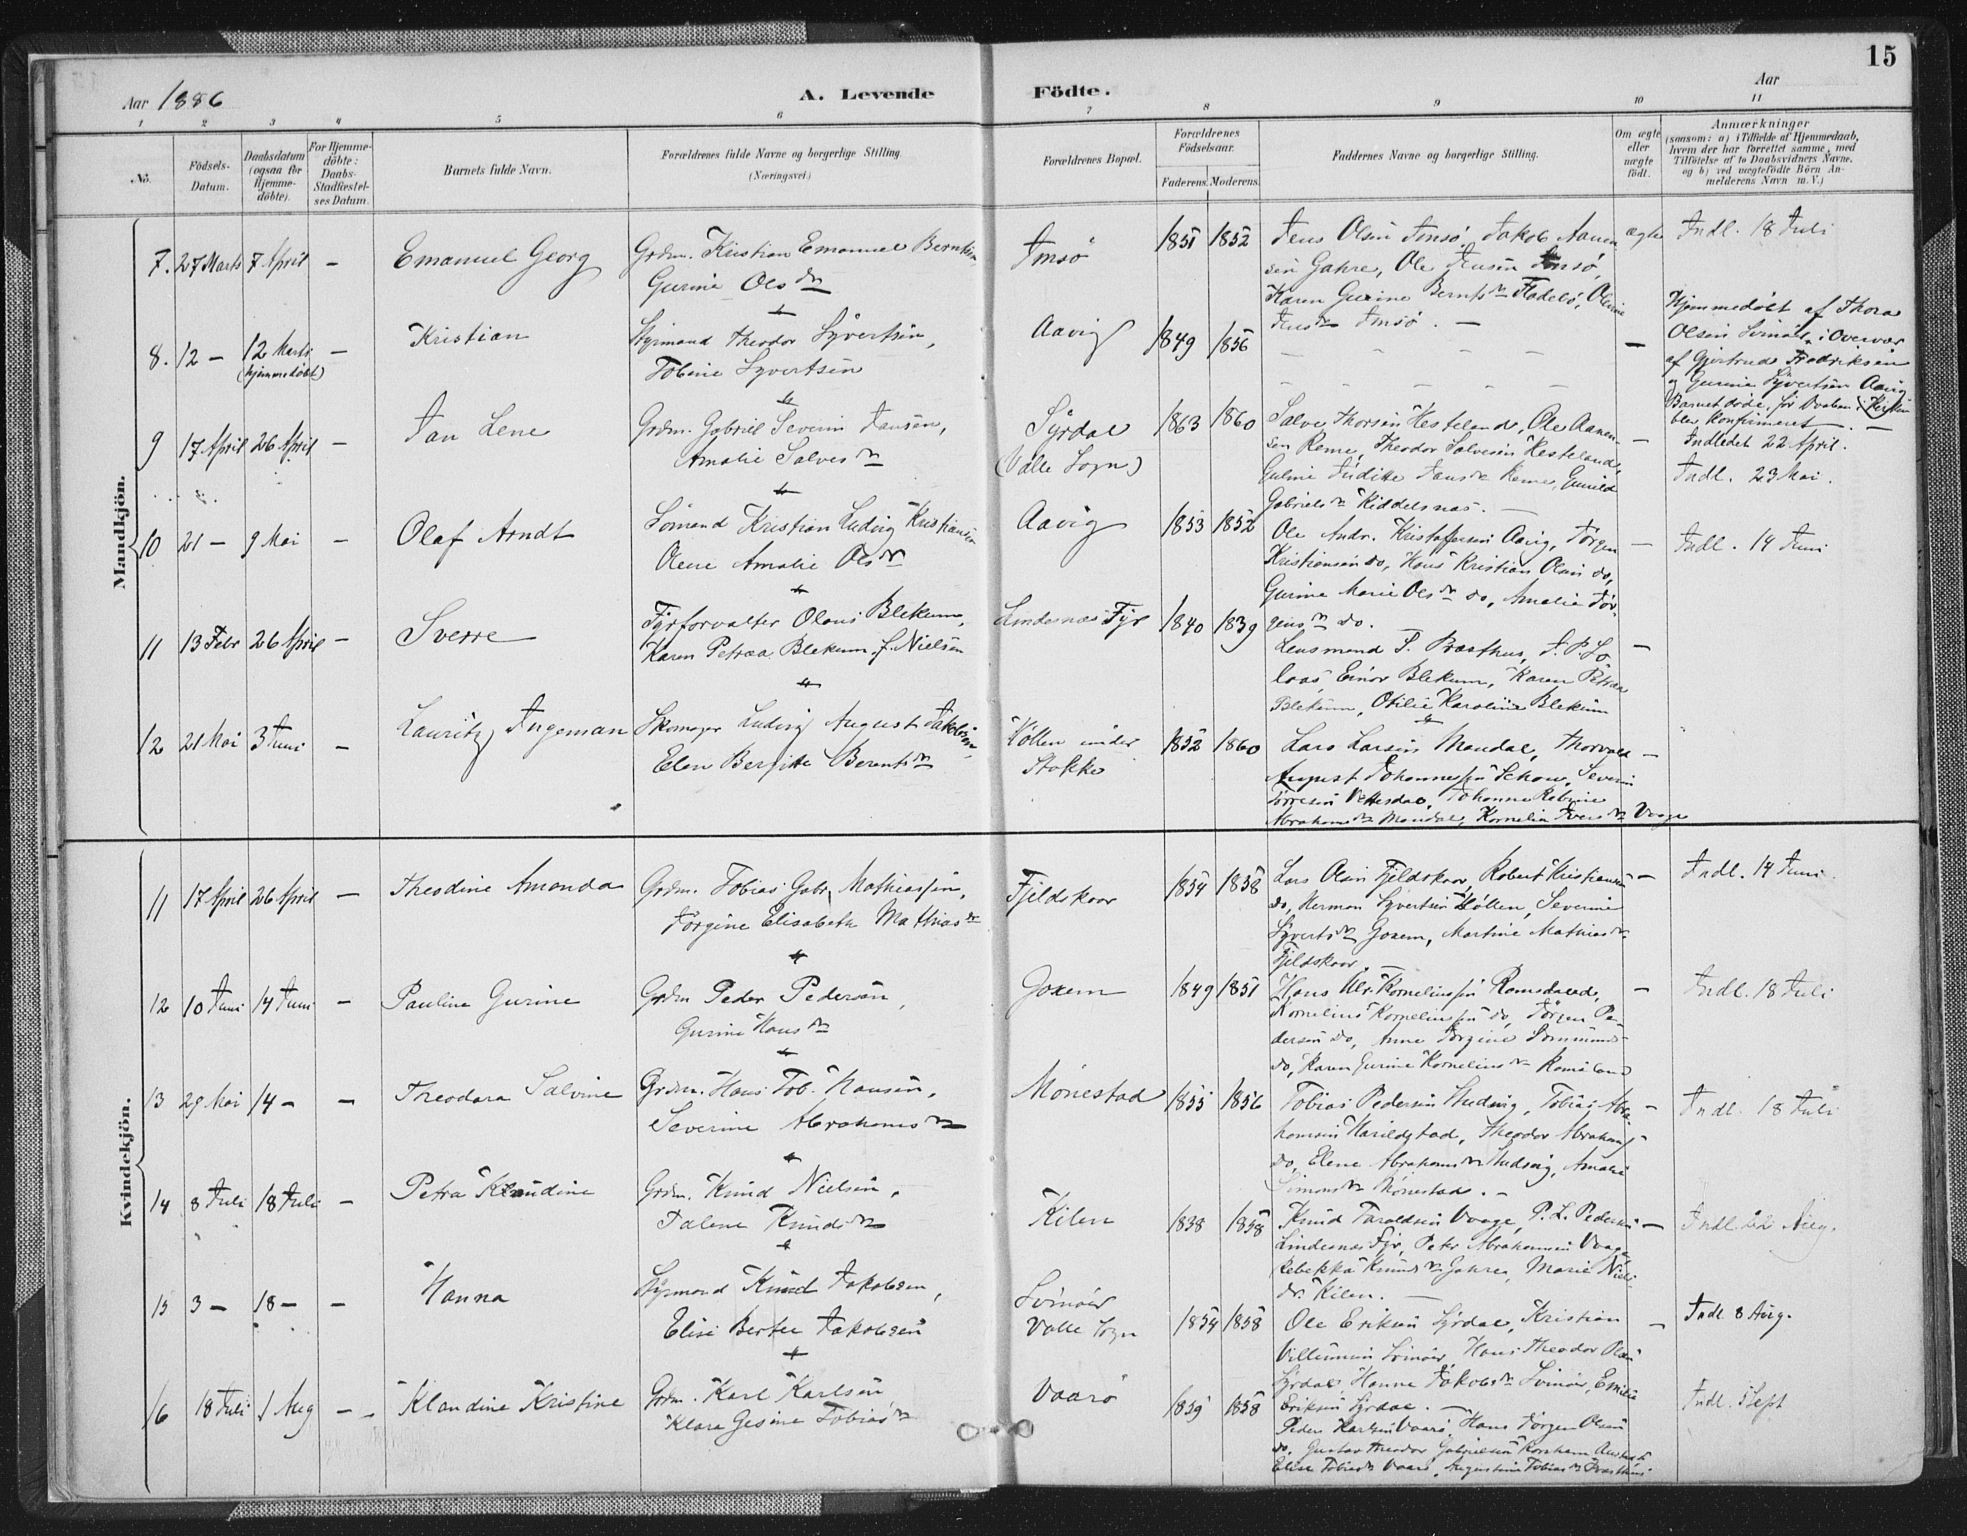 15
Aar 1886
A. Levende Födte.
Aar
1 2 3 4 5 6 7 8 9 10 11
No.
Födsels-Datum.
Daabsdatum (ogsaa for Hjemme-döbte).
For Hjemme-döbte: Daabs-Stadfæstel-ses Datum.
Barnets fulde Navn.
Forældrenes fulde Navne og borgerlige Stilling.
(Næringsvei.)
Forældrenes Bopæl.
Forældrenes Födselsaar.
Faderens. Moderens.
Faddernes Navne og borgerlige Stilling.
Om ægte eller uægte födt.
Anmærkninger
(saasom: a) i Tilfælde af Hjemmedaab,
hvem der har forrettet samme, med
Tilföielse af to Daabsvidners Navne.
og b) ved uægtefödte Börn An-
melderens Navn m. V.)
Mandkjön.
7. 27 Marts 7 April - Emanuel Georg
Grdm. Kristian Emanuel
Gurine Olsdr
Imsö
1851 1852
Jens Olsen Imsö, Jakob Aanen-
sen Gahre, Ole Jensen Imsö,
Karen Gurine Berntsdr
Jensdr Imsö. -
ægte
Indl. 18 Juli
8. 12 - 12 Marts (hjemmedöbt) - Kristian
Styrmand Theodor Syvertsen,
Tobine Syvertsen
Aavig
1849 1856
-
Hjemmedöbt af Thora
Olsen i Overvær
af Gjertrude Fredriksen
og Gurine Syvertsen Aavig
Barnet döde för Daaben i Kirken
blev konfirmeret. -
Indledet 22 April.
9 17 April 26 April - Jan Lene
Grdm. Gabriel Severin Jansen,
Amalie Salvesdr
Syrdal
(Valle Sogn)
1863 1860
Salve Thorsen Hesteland, Ole Aanen-
sen Reme, Theodor Salvesen Hesteland,
Juditte Jansdr Reme, Gunild
Gabrielsdr
-
Indl. 23 Mai.
10 21 - 9 Mai - Olaf Arndt
Sömand Kristian Ludvig Kristiansen
Olene Amalie Olsdr
Aavig
1853 1852
Ole Andr. Kristoffersen Aavig, Jörgen
Kristiansen do, Hans Kristian Olsen do,
Gurine Marie Olsdr do, Amalie Jör-
gensdr do.
-
Indl. 14 Juni
11 13 Febr 26 April - Sverre
Fyrforvalter Olaus Blekum,
Karen Petrea Blekum, f. Nielsen
Lindesnæs Fyr
1840 1839
Lensmand Præsthus,
Einar Blekum, Karen Petrea
Blekum, Otilie Karoline Blekum
-
12 21 Mai 3 Juni - Lauritz Ingeman
Skomager Ludvig August Jakobsen,
Elen Bergitte Berentsdr
Höllen under
Stokke
1852 1860
Lars Larsen Mandal, Thorvald
August Johannessen Schou, Severin
Johanne
Abrahamsdr Mandal, Kornelia Iversdr Vaage
-
Kvindekjön.
11 17 April 26 April - Theodine Amanda
Grdm. Tobias Gabr. Mathiassen,
Jörgine Elisabeth Mathiasdr
Fjeldskaar
1854 1858
Lars Olsen Fjeldskaar, Robert Kristiansen
do, Herman Syvertsen Höllen, Severine
Syvertsdr Goxem, Martine Mathiasdr
Fjeldskaar. -
-
Indl. 14 Juni.
12 10 Juni 14 Juni - Pauline Gurine
Grdm Peder Pedersen,
Gurine Hansdr
Goxem
1849 1851
Hans Ulr. Korneliussen
Kornelius Korneliussen do, Jörgen Pe-
dersen do, Anne Jörgine
do, Karen Gurine Korneliusdr
-
Indl. 18 Juli
13 29 Mai 14 - - Theodora Salvine
Grdm. Hans Tob. Hansen,
Severine Abrahamsdr
Mönestad
1855 1856
Tobias Pedersen Tobias Abra-
hamsen Harildstad, Theodor Abrahams.
do, Elene Abrahamsdr Amalie
Simonsdr Mönestad. -
-
Indl. 18 Juli
14 8 Juli 18 Juli - Petra Klaudine
Grdm. Knud Nielsen,
Talene Knudsdr
Kilen
1838 1858
Knud Taraldsen Vaage, P. L. Pedersen
Lindesnæs Fyr, Peter Abrahamsen Vaage
Rebekka Knudsdr Gahre, Marie Niels
dr. Kilen. -
-
Indl. 22 Aug.
15 3 - 18 - - Hanna
Styrmand Knud Jakobsen,
Elise Berte Jakobsen
Svinöer
Valle Sogn
1854 1858
Ole Eriksen Syrdal, Kristian
Villumsen Svinöer, Hans Theodor Olsen
Syrdal, Hanne Jakobsdr Svinöer, Emilie
Eriksen Syrdal. -
-
Indl. 8 Aug.
16 18 Juli 1 Aug - - Klaudine Kristine
Grdm. Karl Karlsen
Klara Gesine Tobiasdr
Vaarö
1859 1858
Peder Karlsen Vaarö, Hans Jörgen Olsen
do, Gustav Theodor Gabrielsen
Elise Tobiasdr Vaarö, Augustine Tobiasdr
Indl. 5 Sept